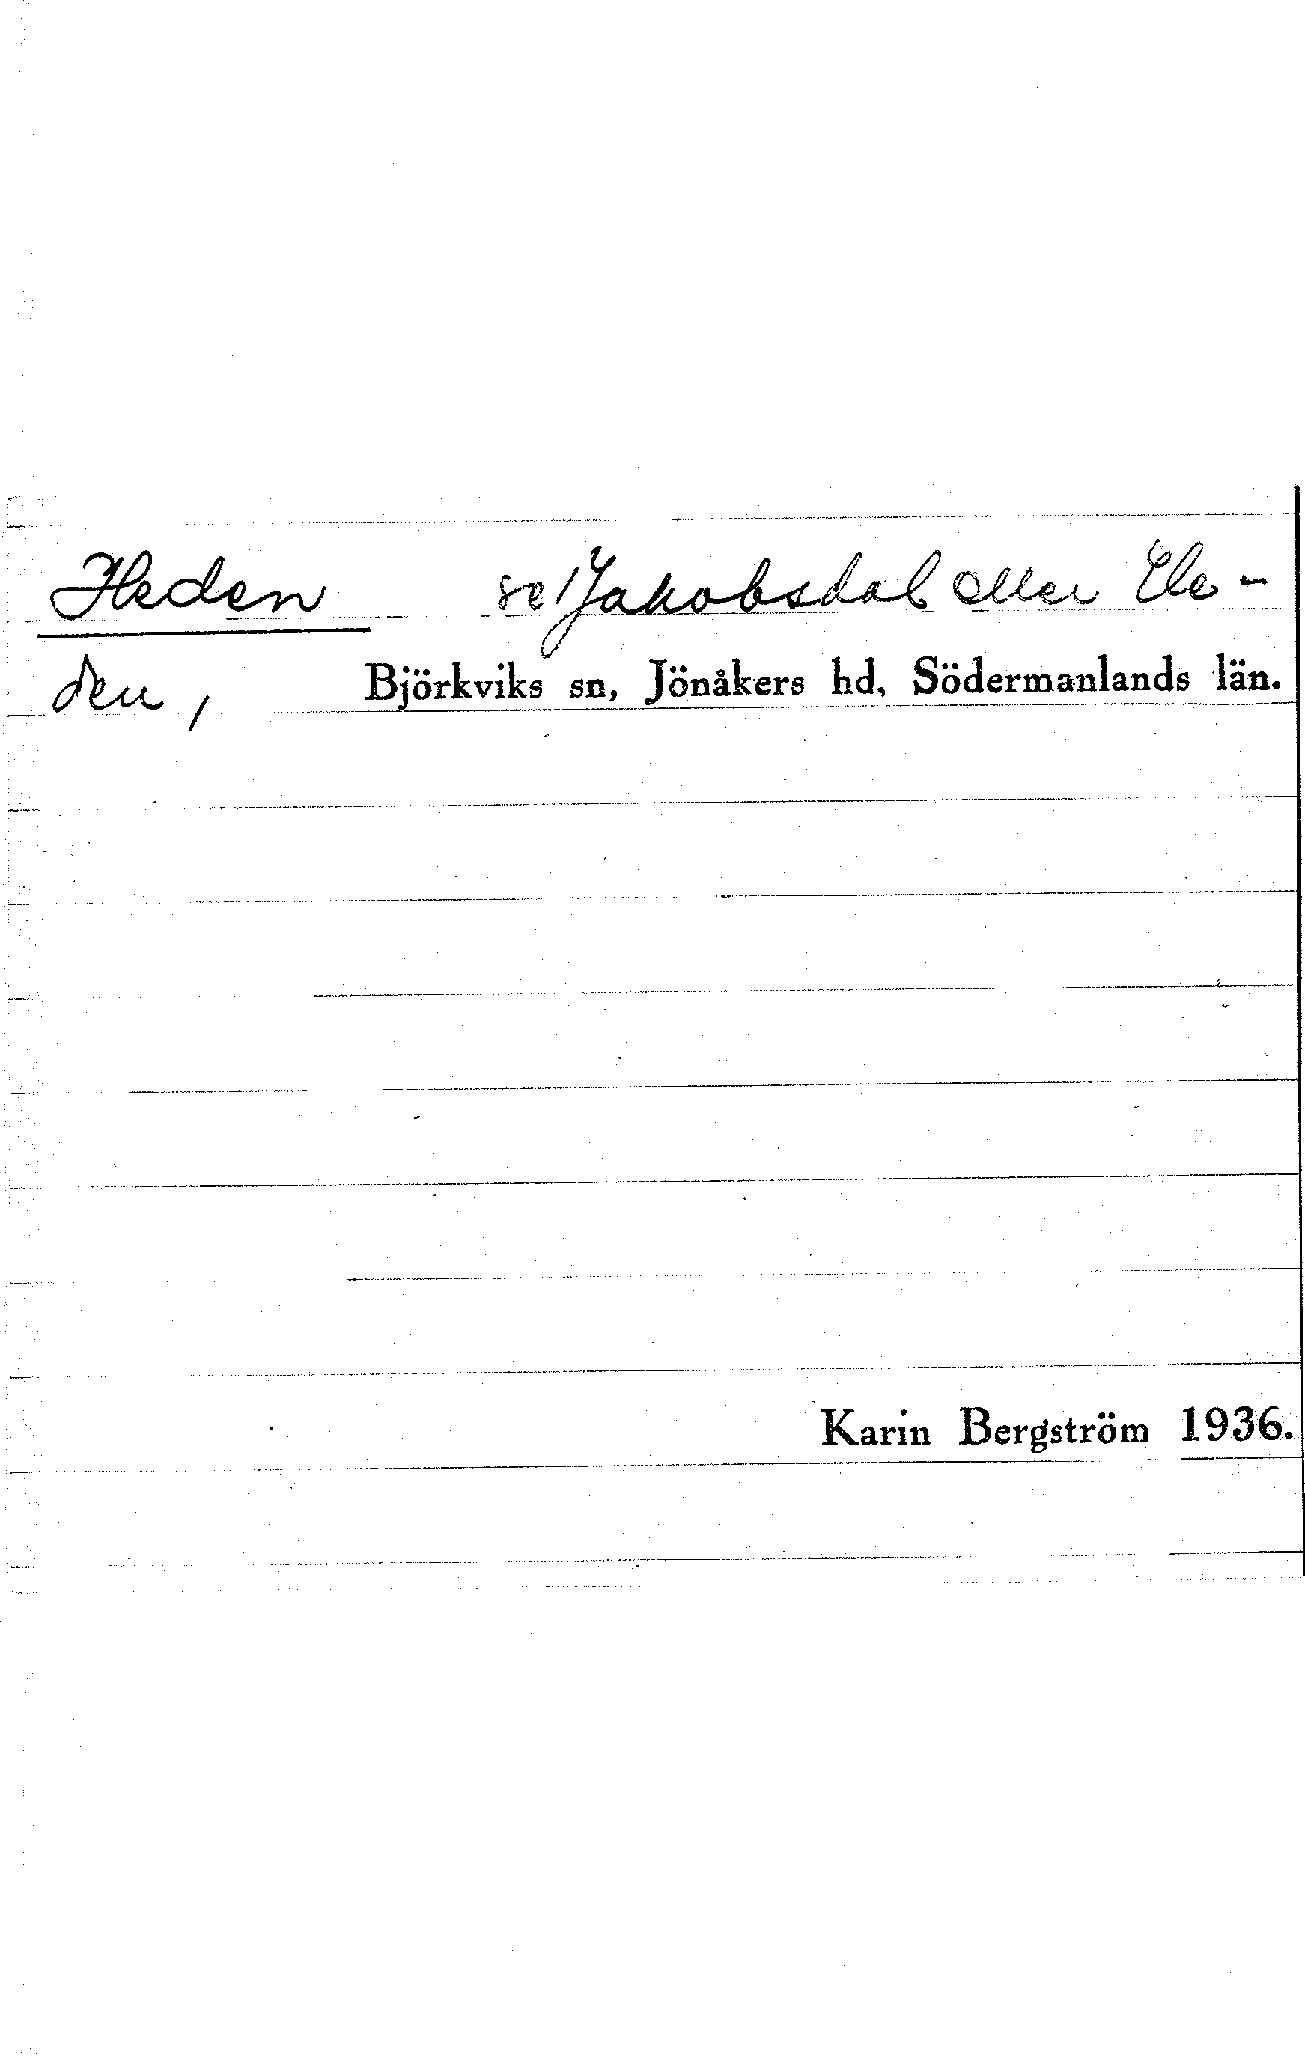 Heden se/Jakobsdal eller Ele-
den, Björkviks sn, Jönåkers hd, Södermanlands län.
Karin Bergström 1936.